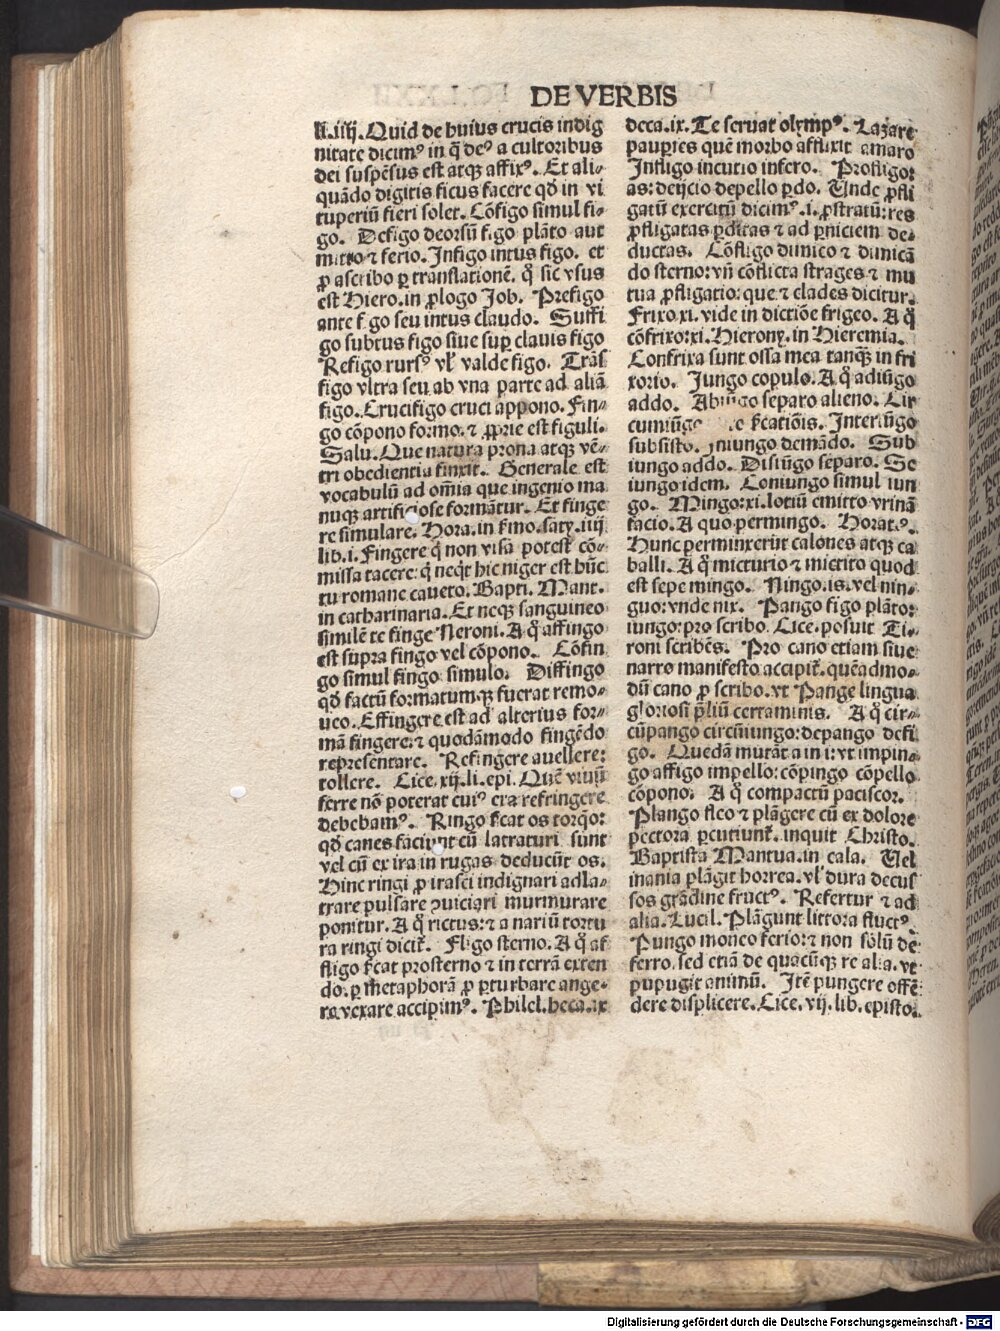 DE VERBIS
li.iiij. Quid de huius crucis indig
nitate dicimꝰ in q̄ deꝰ a cultoribus
dei suspēsus est atqꝫ affixꝰ. Et ali⸗
quādo digitis ficus facere qd̄ in vi
tuperiū fieri solet. Cōfigo simul fi⸗
go. Defigo deorsū figo plāto aut
mitto ⁊ ferio. Infigo intus figo. et
ꝓ ascribo ꝑ translationē. q̄ sic vsus
est Hiero. in ꝓlogo Job. Prefigo
ante figo seu intus claudo. Suffi
go subtus figo siue suꝑ clauis figo
Refigo rursꝰ vl̓ valde figo. Trās
figo vltra seu ab vna parte ad aliā
figo. Crucifigo cruci appono. Fin⸗
go cōpono formo. ⁊ ꝓprie est figuli.
Salu. Que natura prona atqꝫ vē⸗
tri obedientia finxit. Generale est
vocabulū ad om̄ia que ingenio ma
nuqꝫ artificiose formātur. Et finge
re simulare. Hora. in ẜmo. saty. iiij
lib. i. Fingere q̄ non visa potest cō⸗
missa tacere: q̄ neq̄t hic niger est hūc
tu romane caueto. Bapti. Mant.
in catharinaria. Et neqꝫ sanguineo
similē te finge Neroni. A q̄ affingo
est supra fingo vel cōpono. Cōfin
go simul fingo simulo. Diffingo
qd̄ factū formatumqꝫ fuerat remo⸗
ueo. Effingere est ad alterius for⸗
mā fingere. ⁊ quodāmodo fingēdo
representare. Refingere auellere:
tollere. Cice. xij. li. epi. Quē
ferre nō poterat cuiꝰ era refringere
debebamꝰ. Ringo ẜcat os torqō:
qd̄ canes faciunt cū latraturi sunt
vel cū ex ira in rugas deducūt os.
Hinc ringi ꝓ irasci indignari adla⸗
trare pulsare ꝯuiciari murmurare
ponitur. A q̄ rictus: ⁊ a nariū tortu
ra ringi dicit̄. Fligo sterno. A q̄ af
fligo ẜcat prosterno ⁊ in terrā exten
do. ꝑ metaphorā ꝓ ꝑturbare ange⸗
re vexare accipimꝰ. Philel. heca. ix
deca. ix. Te seruat olympꝰ. Lazare
pauꝑies quē morbo afflixit amaro
Infligo incutio infero. Profligo:
as: deijcio depello ꝑdo. Unde ꝓfli
gatū exercitū dicimꝰ. i. ꝓstratū: res
ꝓfligatas ꝑditas ⁊ ad ꝑniciem de⸗
ductas. Cōfligo dimico ⁊ dimicā
do sterno: vn̄ cōflicta strages ⁊ mu
tua ꝓfligatio: que ⁊ clades dicitur.
Frixo xi. vide in dictiōe frigeo. A q̄
cōfrixo: xi. Hierony. in Hieremia.
Confrixa sunt ossa mea tanqꝫ in fri
xorio. Jungo copulo. A q̄ adiūgo
addo. Abiungo separo alieno. Cir
cumiūgo ẜcatiōis. Interiūgo
subsisto. Iniungo demādo. Sub
iungo addo. Disiūgo separo. Se
iungo idem. Coniungo simul iun
go. Mingo: xi. lotiū emitto vrinā
facio. A quo permingo. Horatꝰ.
Hunc perminxerūt calones atqꝫ ca
balli. A q̄ micturio ⁊ mictito quod
est sepe mingo. Ningo. is. vel nin⸗
guo: vnde nix. Pango figo plāto:
iungo: pro scribo. Cice. posuit Ti⸗
roni scribēs. Pro cano etiam siue
narro manifesto accipit̄. quēadmo⸗
dū cano ꝓ scribo. vt Pange lingua
gloriosi p̄liū certaminis. A q̄ cir⸗
cūpango circūiungo: depango defi
go. Quedā mutāt a in i: vt impin⸗
go affigo impello: cōpingo cōpello
cōpono. A q̄ compactū paciscor.
Plango fleo ⁊ plāgere cū ex dolore
pectora ꝑcutiunt̄. inquit Christo.
Baptista Mantua. in cala. Uel
inania plāgit horrea. vl̓ dura decus
sos grādine fructꝰ. Refertur ⁊ ad
alia. Lucil. Plāgunt littora fluctꝰ.
Pungo moneo ferio: ⁊ non solū de
ferro. sed etiā de quacūqꝫ re alia. vt
pupugit animū. Itē pungere offē⸗
dere displicere. Cice. vij. lib. episto.
Digitalisierung gefördert durch die Deutsche Forschungsgemeinschaft - DFG